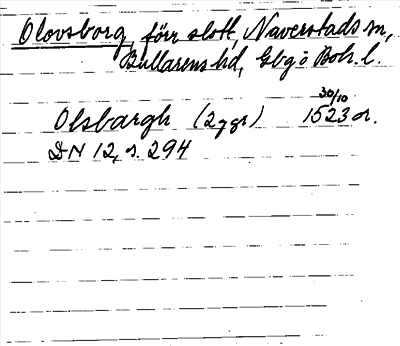 Olovsborg, förr slott, Naverstads sn,
Bullarens hd, Gbg o Boh. l.
30/10
Olsbargh (2 ggr) 1523 or.
DN 12, s. 294